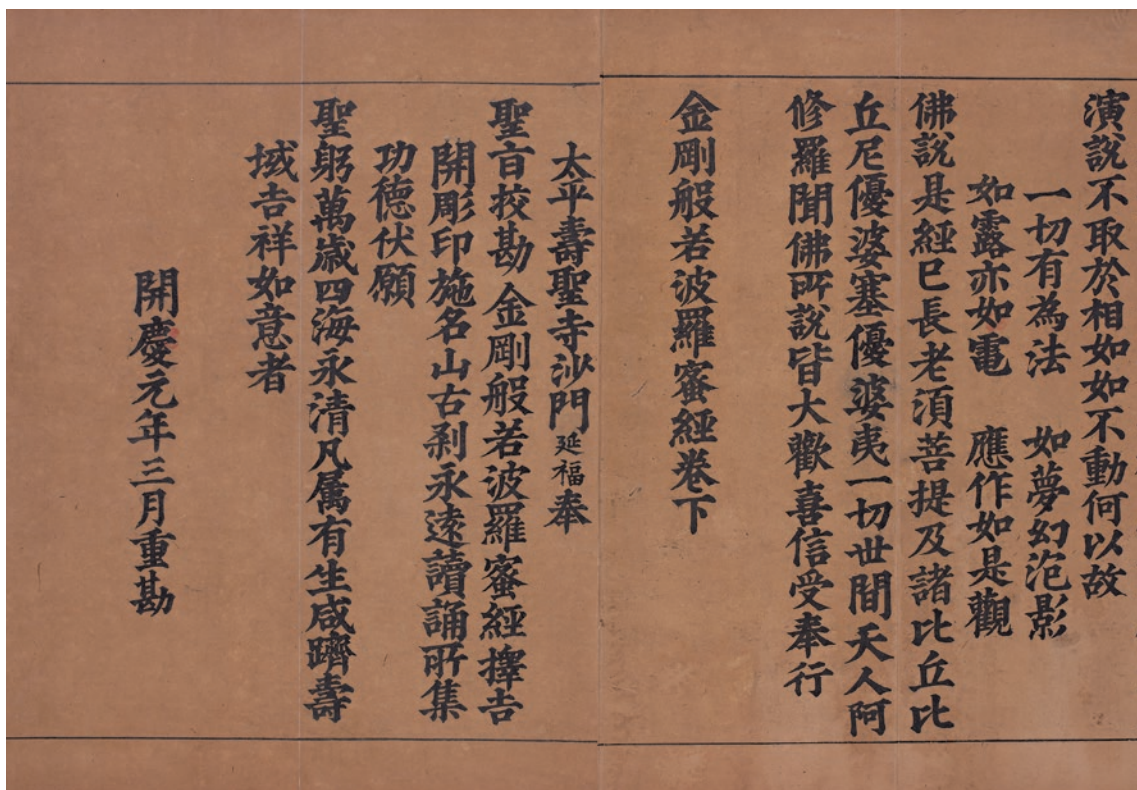 演說不取於相如如不動何以故
一切有為法　如夢幻泡影
如露亦如電　應作如是觀
佛說是經已長老須菩提及諸比丘比
丘尼優婆塞優婆夷一切世間天人阿
修羅聞佛所說皆大歡喜信受奉行
金剛般若波羅蜜經卷下
太平壽聖寺沙門延福奉
聖旨挍勘　金剛般若波羅蜜經擇吉
開彫印施名山古剎永遠讀誦所集
功德伏願
聖躬萬歲四海永清凡属有生咸躋壽
域吉祥如意者
開慶元年三月重勘